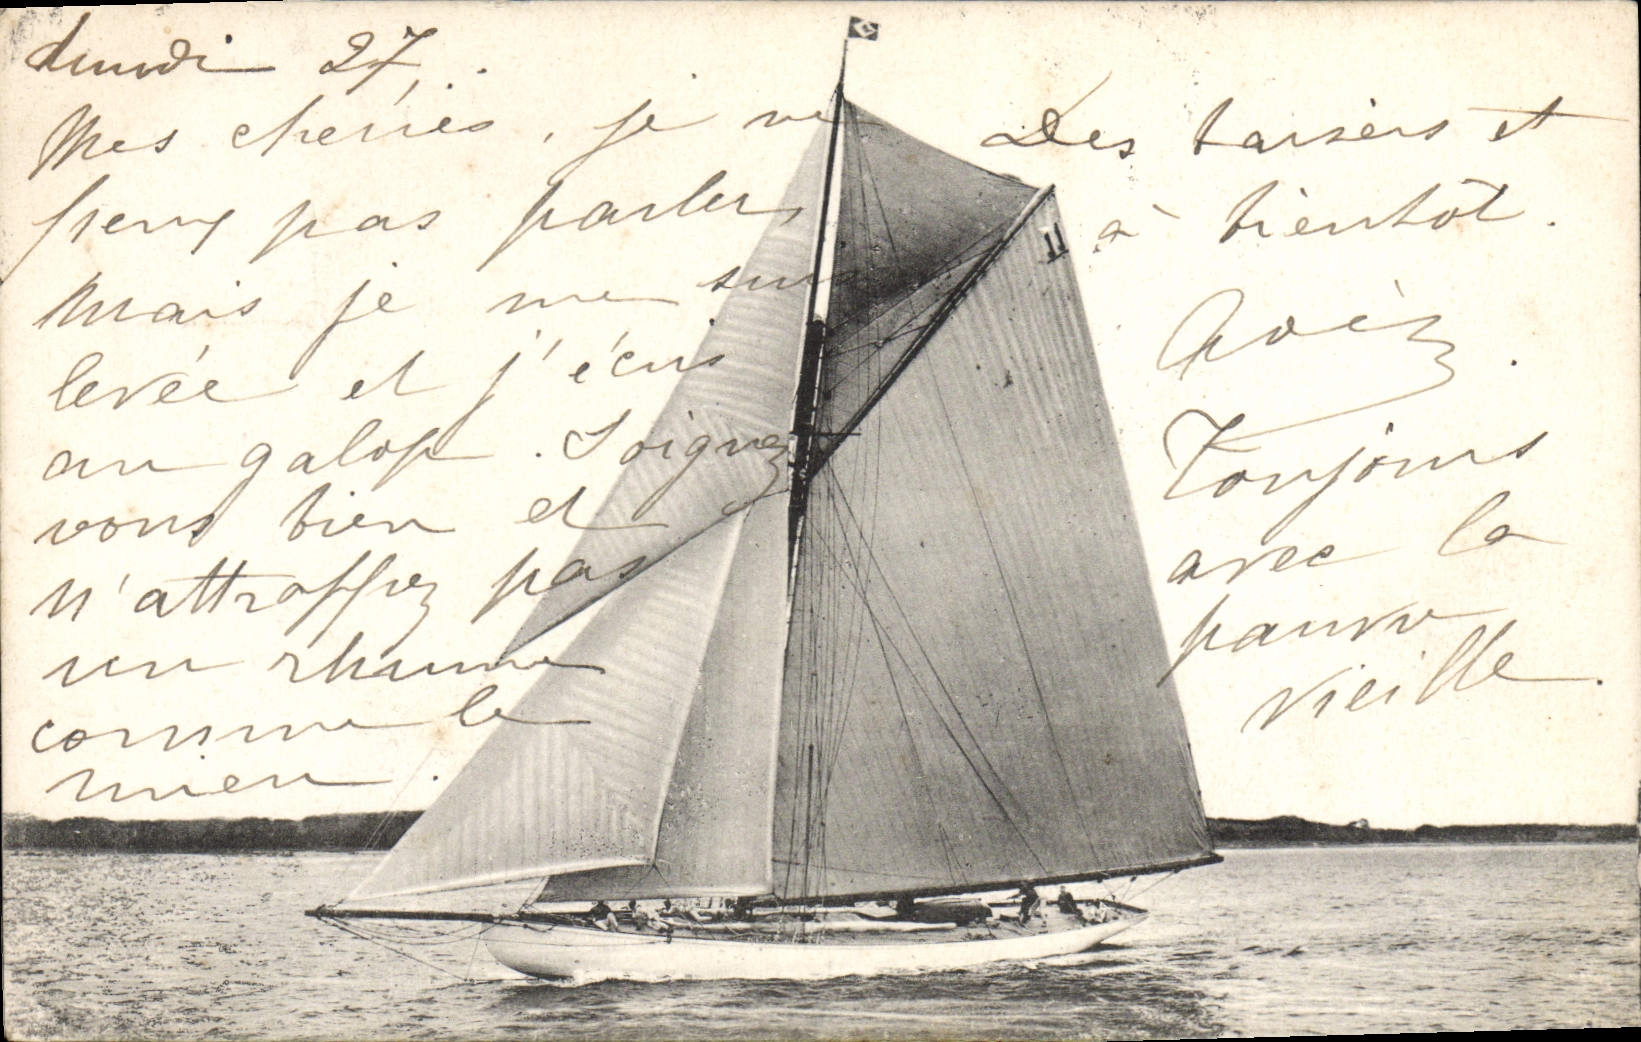 Lundi 27.
Mes chéries, je ne
peux pas parler,
mais je me suis
levée et j'écris
au galop. Soignez
vous bien et
n'attraffez pas
un rhume
comme le
mien.
Des baisers et
à bientôt.
Toujours
avec la
pauvre
vieille.
11